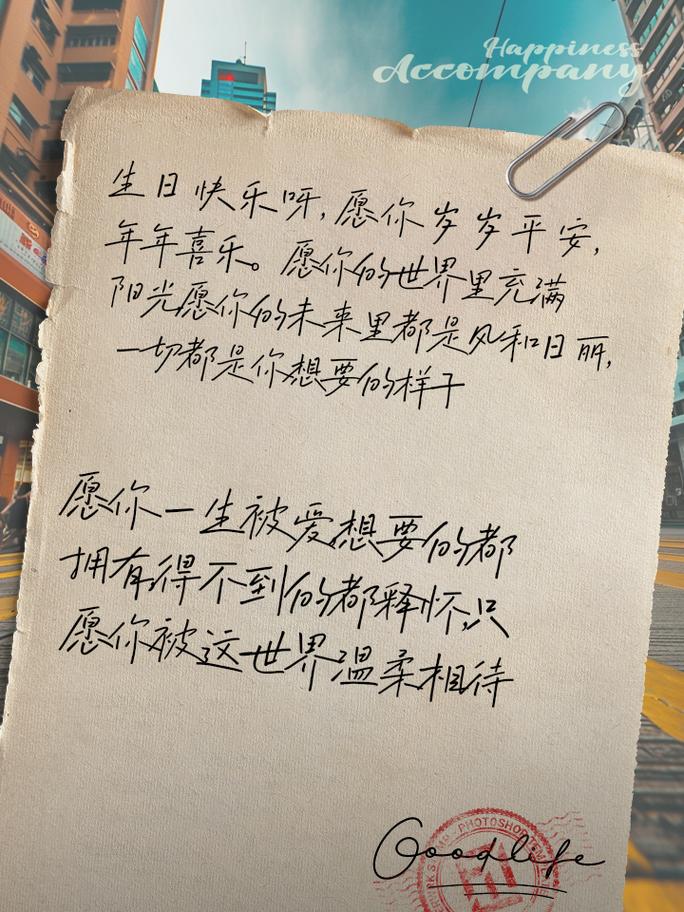 Happiness
Accompany
生日快乐呀,愿你岁岁平安,
年年喜乐。愿你的世界里充满
阳光愿你的未来里都是风和日丽,
一切都是你想要的样子
愿你一生被爱想要的都
拥有得不到的都释怀,只
愿你被这世界温柔相待
Goodlife
PHOTOSHOP